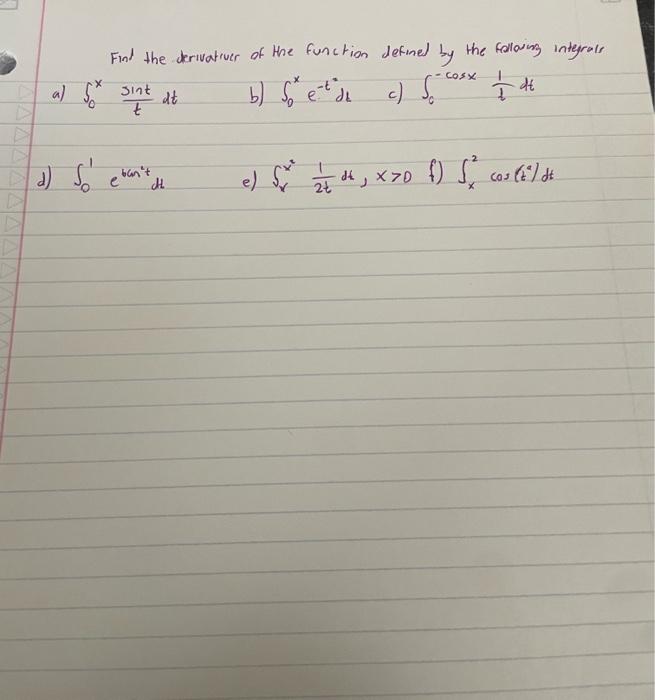 Find the derivatives of the function defined by the following integrals
a) ∫₀ˣ sint/t dt b) ∫₀ˣ e^-t² dt c) ∫₀^-cosx 1/t dt
d) ∫₀¹ e^tan²t dt e) ∫ₓ^x² 1/2t dt, x>0 f) ∫ₓ² cos(t²)dt